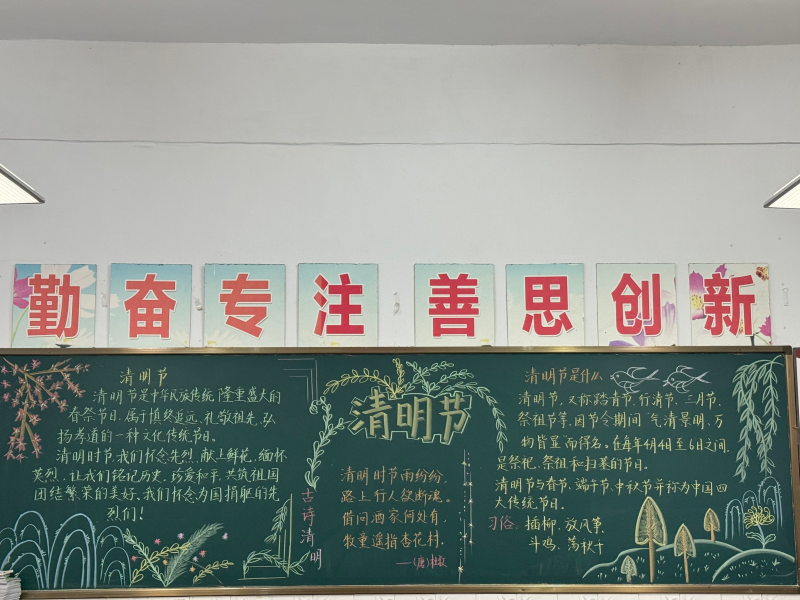 勤奋专注 善思创新
清明节
清明节是中华民族传统隆重盛大的
春祭节日，属于慎终追远、礼敬祖先、弘
扬孝道的一种文化传统节日。
清明时节我们怀念先烈，献上鲜花，缅怀
英烈，让我们铭记历史，珍爱和平，共筑祖国
团结繁荣的美好，我们怀念为国捐躯的先
烈们！
古诗清明
清明节
清明时节雨纷纷，
路上行人欲断魂。
借问酒家何处有，
牧童遥指杏花村。
——（唐）杜牧
清明节是什么
清明节，又称踏青节，行清节，三月节，
祭祖节等，因节令期间“气清景明，万
物皆显”而得名。在每年4月4日至6日之间，
是祭祀、祭祖和扫墓的节日。
清明节与春节、端午节、中秋节并称为中国四
大传统节日。
习俗：插柳、放风筝、
斗鸡、荡秋千